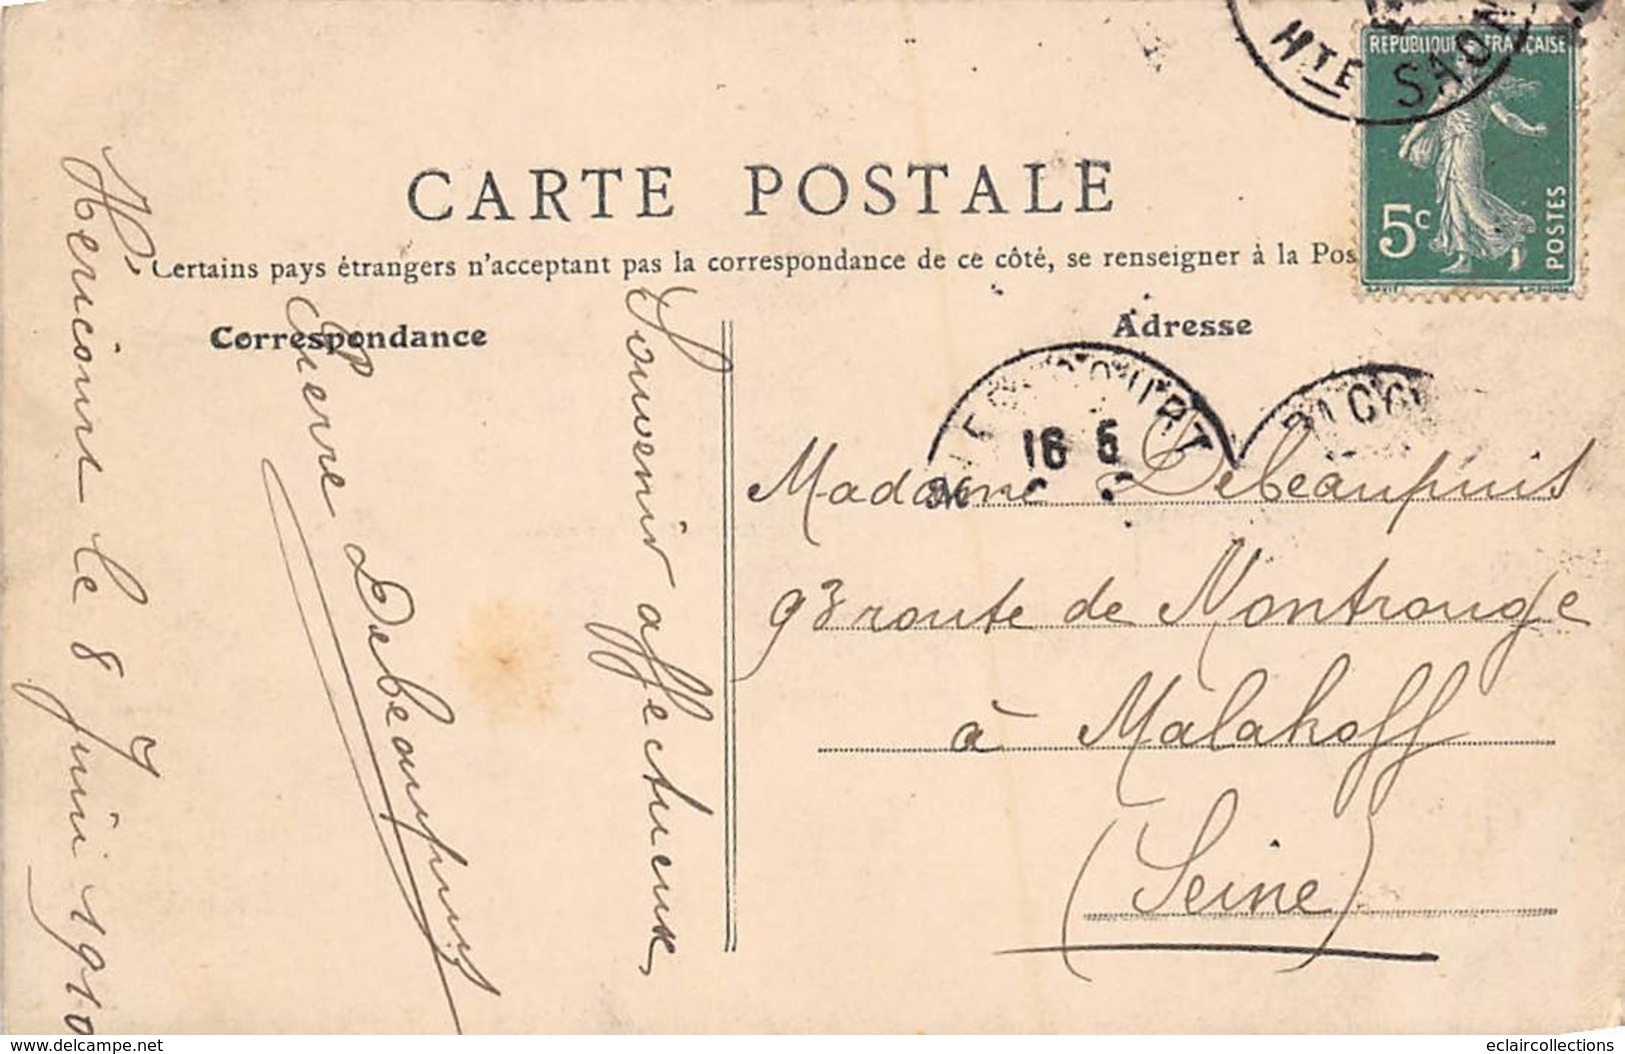 HTE SAON
REPUBLIQUE FRANCAISE
5c
POSTES
CARTE POSTALE
Certains pays étrangers n'acceptent pas la correspondance de ce côté, se renseigner à la Pos
Correspondance
Adresse
16 5
Héricourt le 8 Juin 1910
Souvenir affectueux,
Pierre Debeaupuis
Madame Debeaupuis
93 route de Montrouge
à Malakoff
(Seine)
www.delcampe.net
eclaircollections